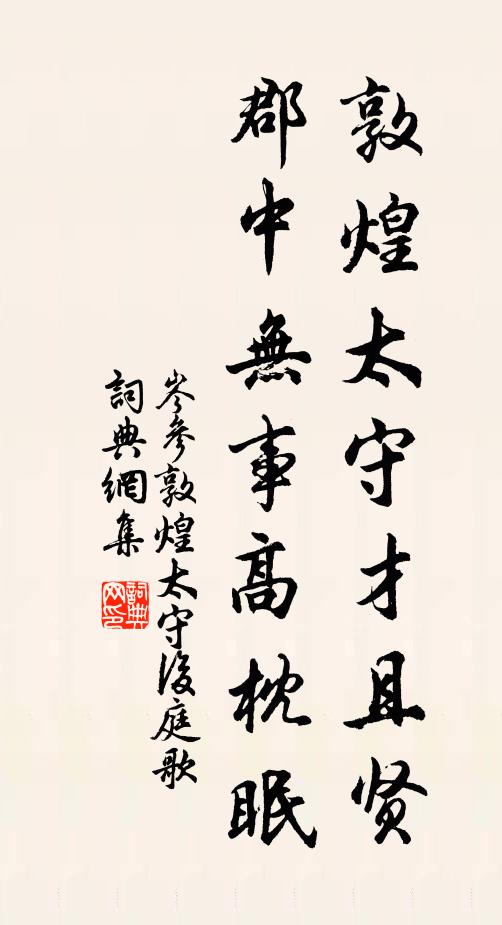 敦煌太守才且贤
郡中無事高枕眠
岑參敦煌太守後庭歌
詞典網集
詞典网印